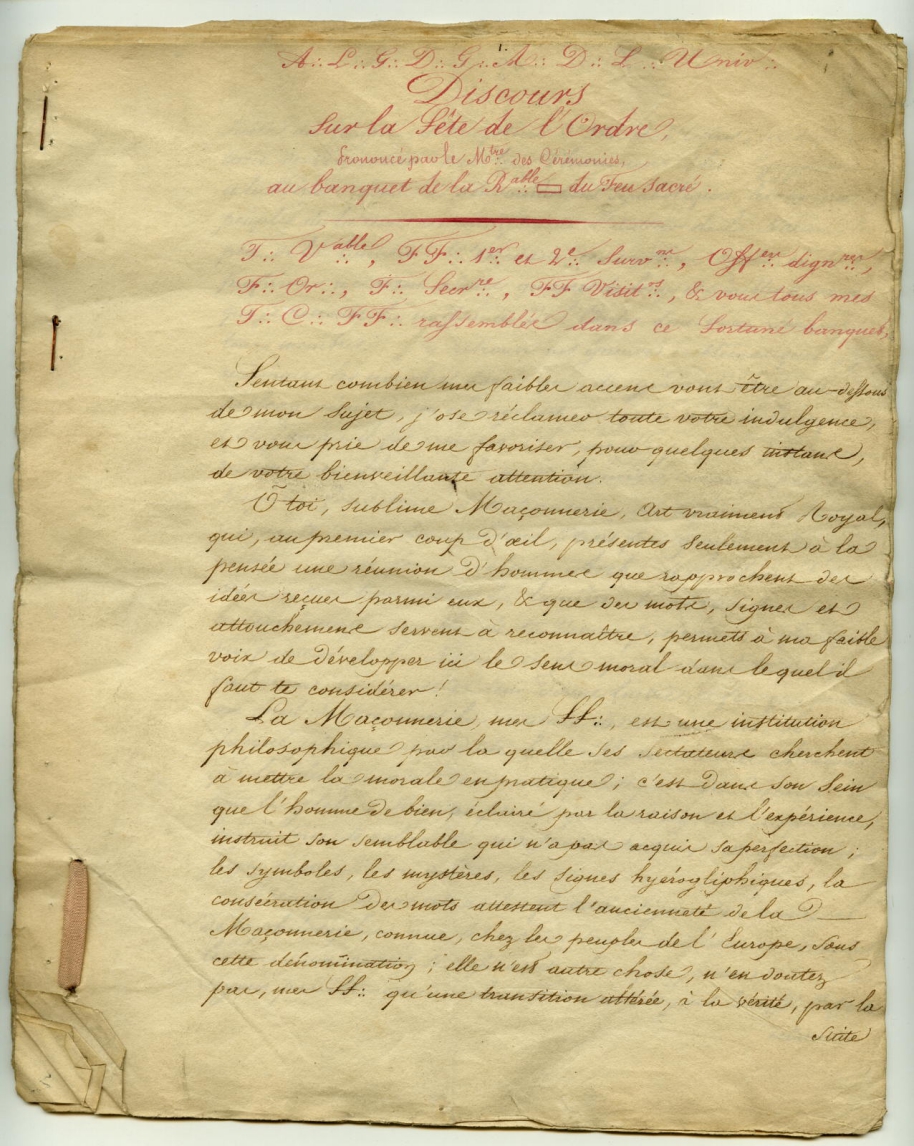 A∴ L∴ G∴ D∴ G∴ A∴ D∴ L∴ Univ∴
Discours
sur la Fête de l'Ordre,
Prononcé par le Mtre∴ des Cérémonies,
au banquet de la Rable∴ ▭ du Feu Sacré.
T∴ Vable∴, FF∴ 1er et 2e∴ Survnts, Offers∴ dignres∴,
F∴ Or∴, F∴ Secrre∴, FF Visitrs∴, & vous tous mes
T∴ C∴ FF∴ rassemblés dans ce fortuné banquet,
Sentant combien mes faibles accens vont être au-dessous
de mon sujet, j'ose réclamer toute votre indulgence,
et vous prie de me favoriser, pour quelques instans,
de votre bienveillante attention.
Ô toi, sublime Maçonnerie, Art vraiment Royal,
qui, au premier coup d'œil, présentes seulement à la
pensée une réunion d'hommes que rapprochent des
idées reçues parmi eux, & que des mots, signes et
attouchemens servent à reconnaître, permets à ma faible
voix de développer ici le sens moral dans le quel il
faut te considérer !
La Maçonnerie, mes ff∴, est une institution
philosophique par la quelle ses sectateurs cherchent
à mettre la morale en pratique ; c'est dans son sein
que l'homme de bien, éclairé par la raison et l'expérience,
instruit son semblable qui n'a pas acquis sa perfection ;
les symboles, les mystères, les signes hyérogliphiques, la
consécration des mots attestent l'ancienneté de la
Maçonnerie, connue, chez les peuples de l'Europe, sous
cette dénomination ; elle n'est autre chose, n'en doutez
pas, mes ff∴ qu'une transition altérée, à la vérité, par la
suite